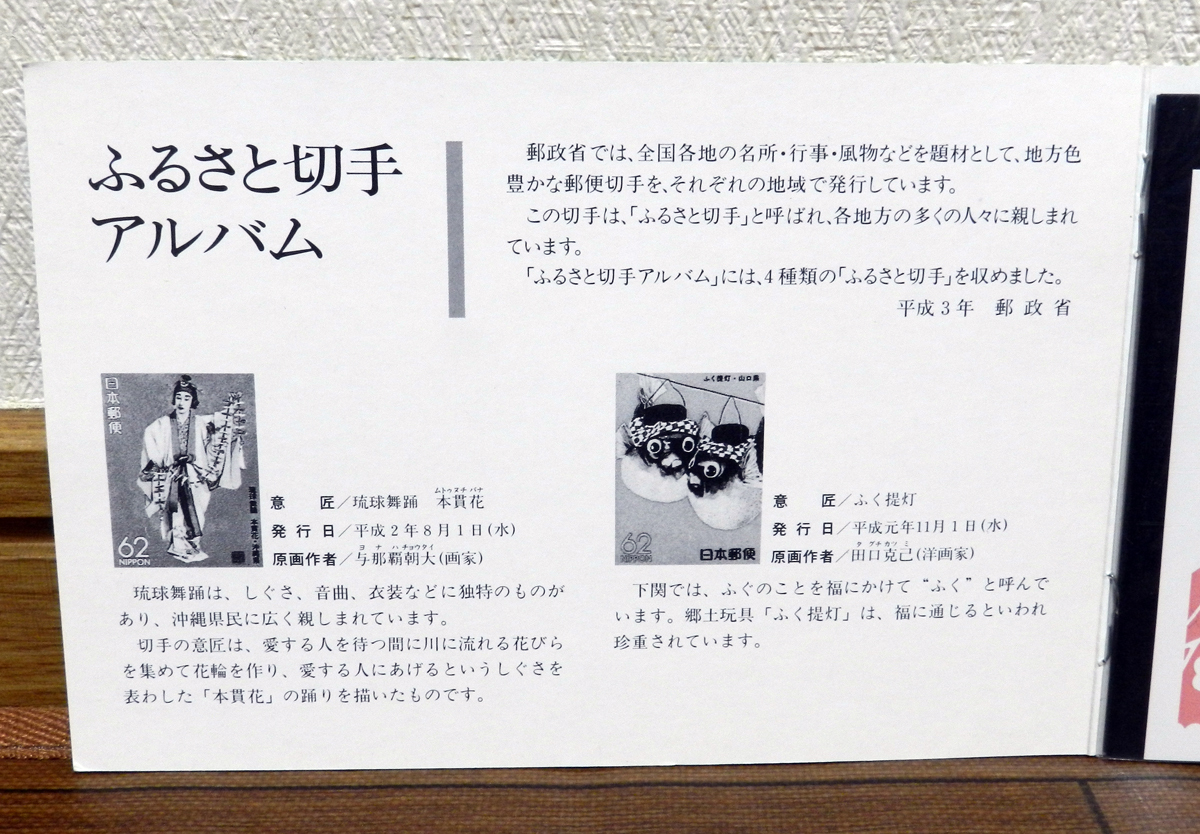 ふるさと切手
アルバム
郵政省では、全国各地の名所・行事・風物などを題材として、地方色
豊かな郵便切手を、それぞれの地域で発行しています。
この切手は、「ふるさと切手」と呼ばれ、各地方の多くの人々に親しまれ
ています。
「ふるさと切手アルバム」には、4種類の「ふるさと切手」を収めました。
平成3年 郵政省
日本郵便
琉球舞踊 本貫花・沖縄県
62
NIPPON
意 匠／琉球舞踊 本貫花
ムトゥヌチバナ
発行日／平成2年8月1日(水)
原画作者／与那覇朝大(画家)
ヨナハチョウタイ
琉球舞踊は、しぐさ、音曲、衣装などに独特のものが
あり、沖縄県民に広く親しまれています。
切手の意匠は、愛する人を待つ間に川に流れる花びら
を集めて花輪を作り、愛する人にあげるというしぐさを
表わした「本貫花」の踊りを描いたものです。
ふく提灯・山口県
62
NIPPON
日本郵便
意 匠／ふく提灯
発行日／平成元年11月1日(水)
原画作者／田口克己(洋画家)
タグチカツミ
下関では、ふぐのことを福にかけて“ふく”と呼んで
います。郷土玩具「ふく提灯」は、福に通じるといわれ
珍重されています。